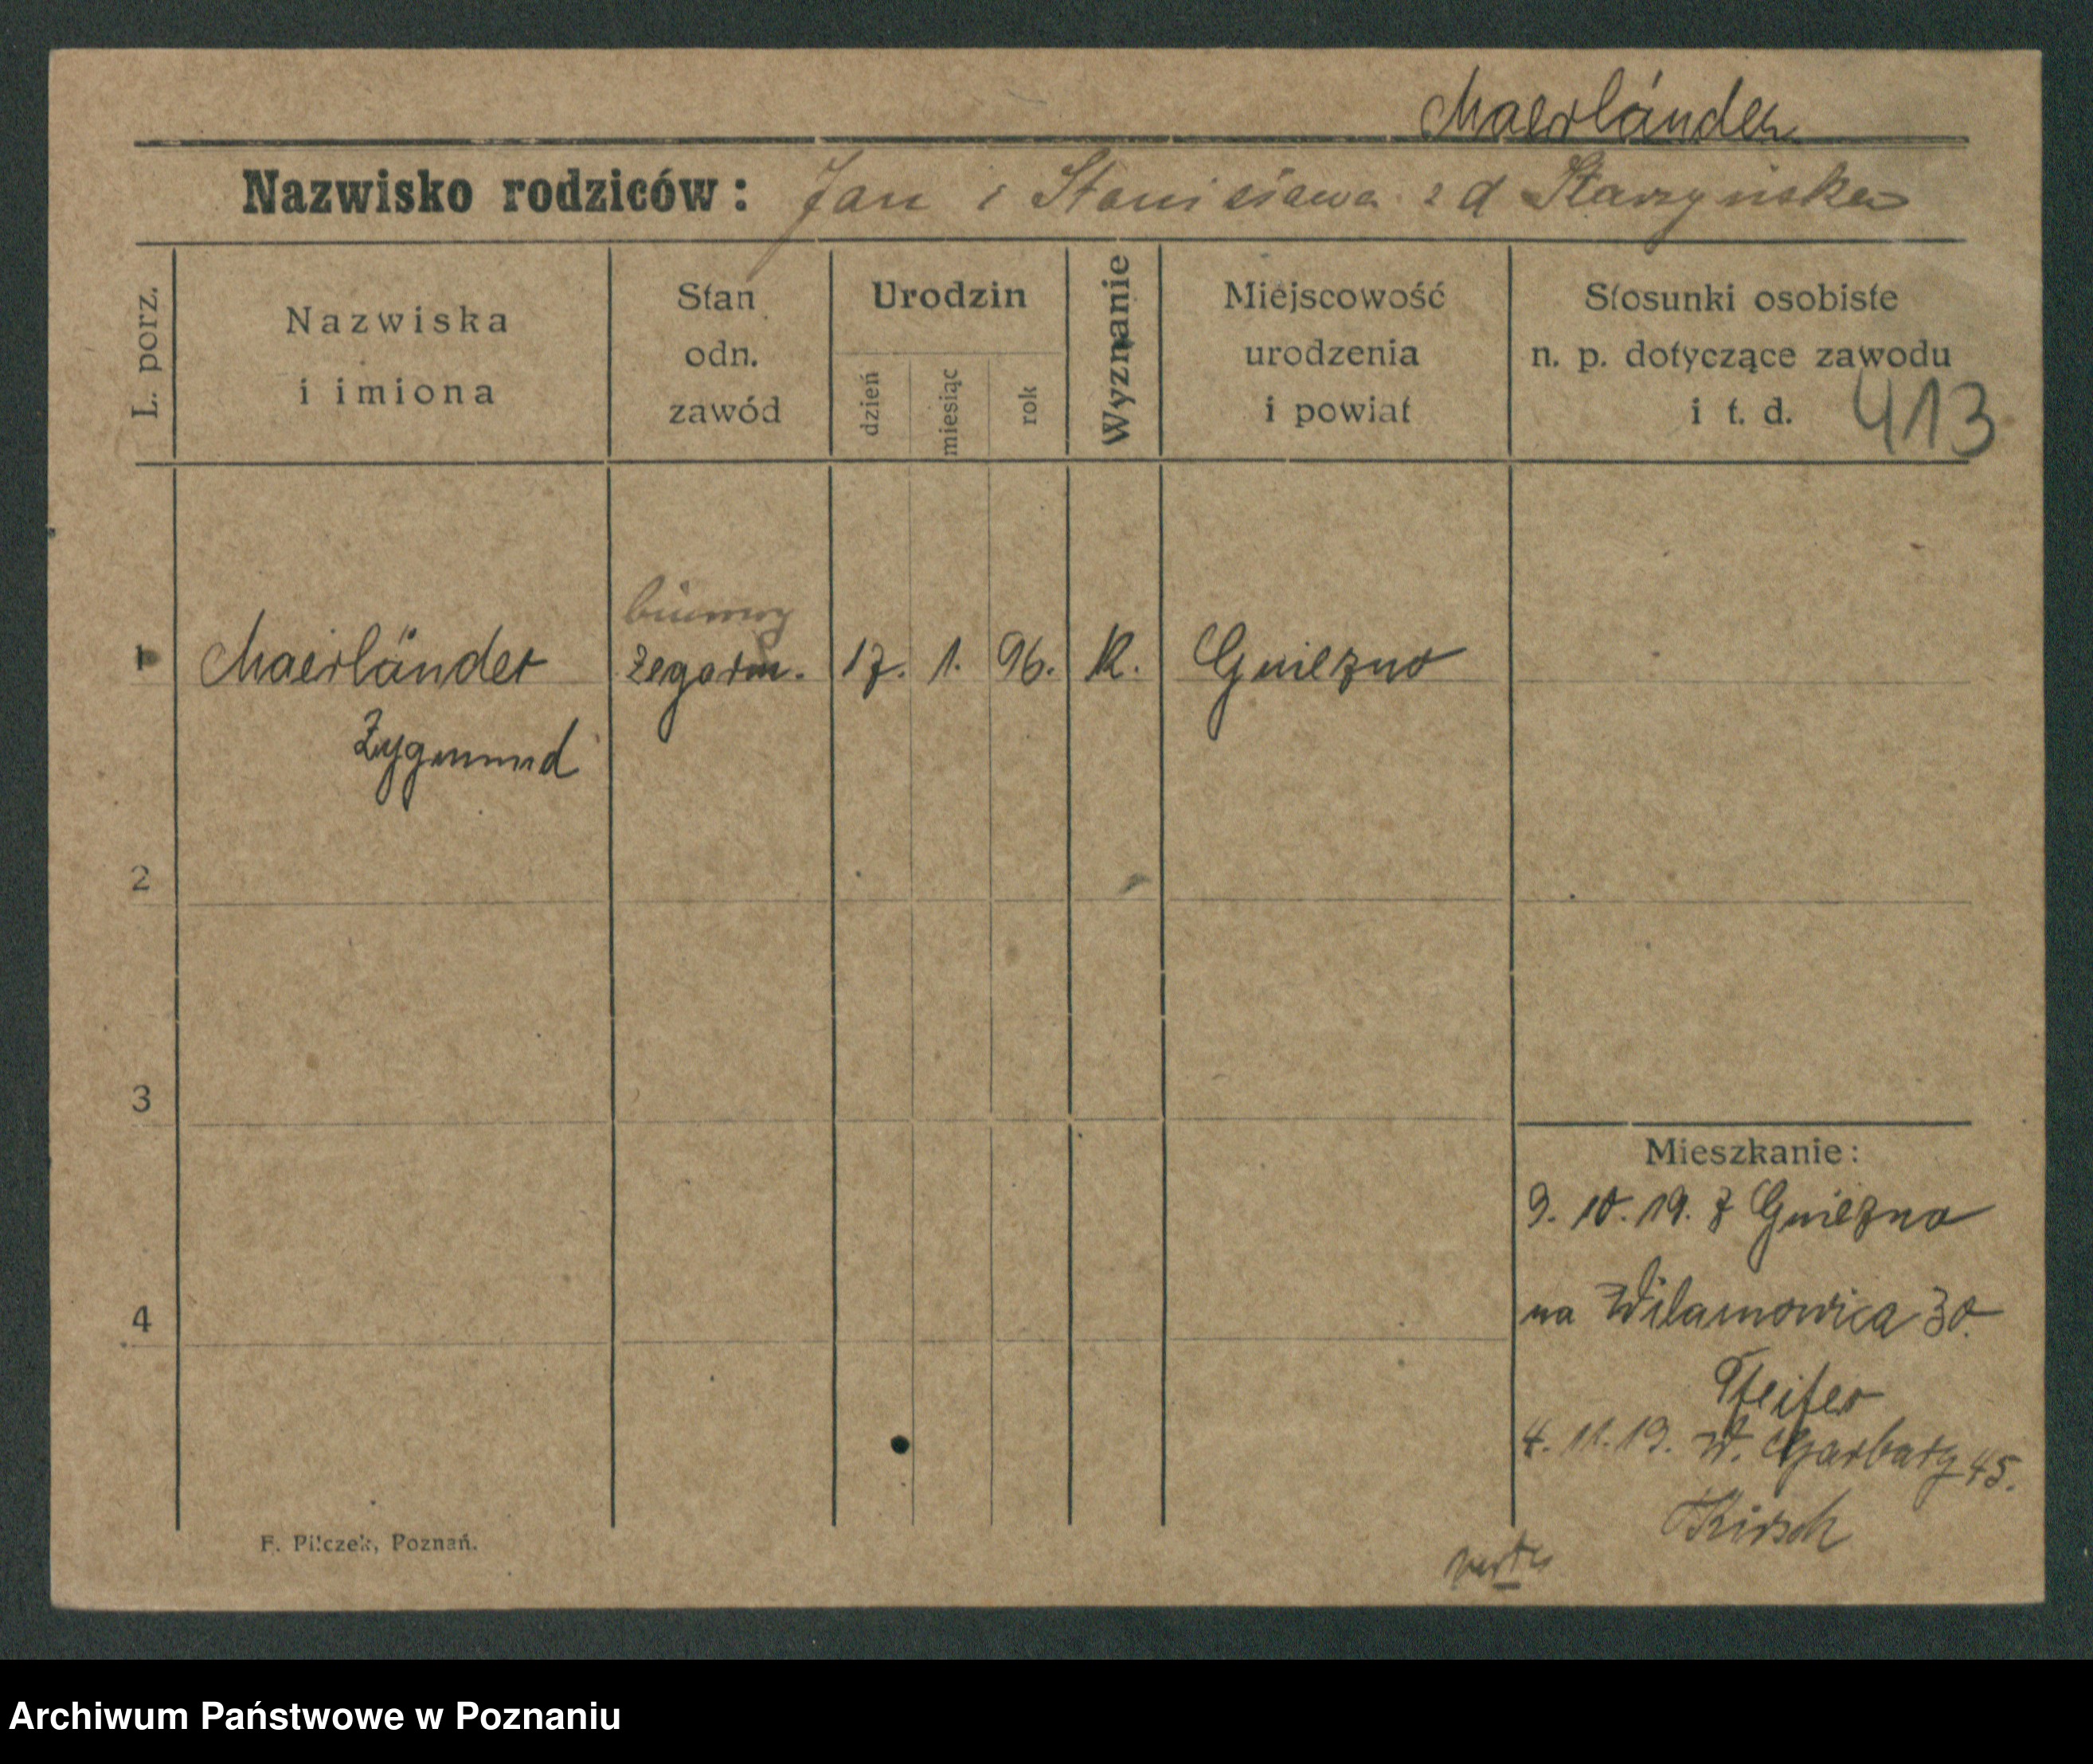 Maerländer
Nazwisko rodziców: Jan i Stanisława z d Starzyńska
L. porz.
Nazwiska
i imiona
Stan
odn.
zawód
Urodzin
dzień
miesiąc
rok
Wyznanie
Miejscowość
urodzenia
i powiat
Stosunki osobiste
n. p. dotyczące zawodu
i t. d.
413
biurowy
1 Maerländer zegarm. 17. 1. 96. K. Gniezno
Zygmund
2
3
Mieszkanie:
9. 10. 19. z Gniezna
4
na Wilamowica 30.
Pfeifer
4. 11. 19. W. Garbary 45.
Kirsch
F. Pilczek, Poznań.
Archiwum Państwowe w Poznaniu